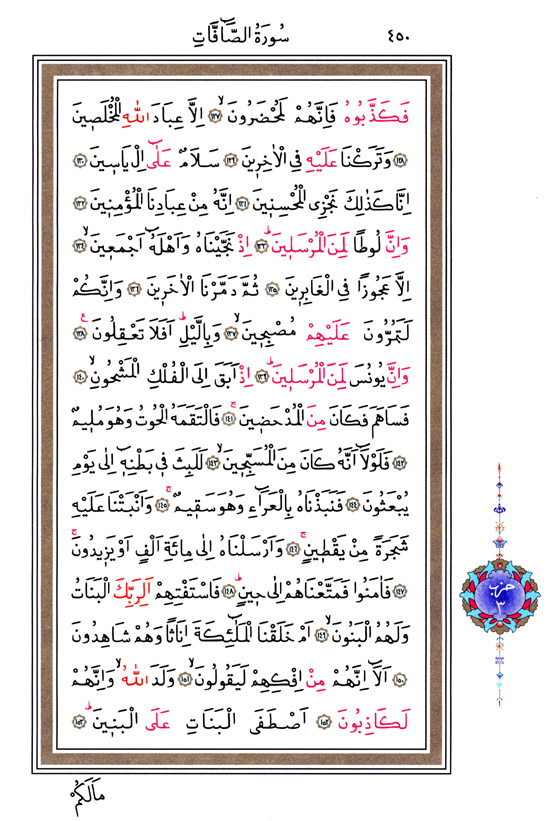 ٤٥٠
سُورَةُ الصَّٓافَّاتِ
فَكَذَّبُوهُ فَاِنَّهُمْ لَمُحْضَرُونَۙ ﴿١٢٧﴾ اِلَّا عِبَادَ اللّٰهِ الْمُخْلَصٖينَ
﴿١٢٨﴾ وَتَرَكْنَا عَلَيْهِ فِي الْاٰخِرٖينَۙ ﴿١٢٩﴾ سَلَامٌ عَلٰٓى اِلْ يَاسٖينَ ﴿١٣٠﴾
اِنَّا كَذٰلِكَ نَجْزِي الْمُحْسِنٖينَ ﴿١٣١﴾ اِنَّهُ مِنْ عِبَادِنَا الْمُؤْمِنٖينَ ﴿١٣٢﴾
وَاِنَّ لُوطًا لَمِنَ الْمُرْسَلٖينَۜ ﴿١٣٣﴾ اِذْ نَجَّيْنَاهُ وَاَهْلَهُٓ اَجْمَعٖينَۙ ﴿١٣٤﴾
اِلَّا عَجُوزًا فِي الْغَابِرٖينَ ﴿١٣٥﴾ ثُمَّ دَمَّرْنَا الْاٰخَرٖينَ ﴿١٣٦﴾ وَاِنَّكُمْ
لَتَمُرُّونَ عَلَيْهِمْ مُصْبِحٖينَۙ ﴿١٣٧﴾ وَبِالَّيْلِۜ اَفَلَا تَعْقِلُونَ۟ ﴿١٣٨﴾
وَاِنَّ يُونُسَ لَمِنَ الْمُرْسَلٖينَۜ ﴿١٣٩﴾ اِذْ اَبَقَ اِلَى الْفُلْكِ الْمَشْحُونِۙ ﴿١٤٠﴾
فَسَاهَمَ فَكَانَ مِنَ الْمُدْحَضٖينَۚ ﴿١٤١﴾ فَالْتَقَمَهُ الْحُوتُ وَهُوَ مُلٖيمٌ
﴿١٤٢﴾ فَلَوْلَٓا اَنَّهُ كَانَ مِنَ الْمُسَبِّحٖينَۙ ﴿١٤٣﴾ لَلَبِثَ فٖي بَطْنِهٖٓ اِلٰى يَوْمِ
يُبْعَثُونَ ﴿١٤٤﴾ فَنَبَذْنَاهُ بِالْعَرَٓاءِ وَهُوَ سَقٖيمٌۚ ﴿١٤٥﴾ وَاَنْبَتْنَا عَلَيْهِ
شَجَرَةً مِنْ يَقْطٖينٍۚ ﴿١٤٦﴾ وَاَرْسَلْنَاهُ اِلٰى مِائَةِ اَلْفٍ اَوْ يَزٖيدُونَۚ
﴿١٤٧﴾ فَاٰمَنُوا فَمَتَّعْنَاهُمْ اِلٰى حٖينٍۜ ﴿١٤٨﴾ فَاسْتَفْتِهِمْ اَلِرَبِّكَ الْبَنَاتُ
وَلَهُمُ الْبَنُونَۙ ﴿١٤٩﴾ اَمْ خَلَقْنَا الْمَلٰٓئِكَةَ اِنَاثًا وَهُمْ شَاهِدُونَ
﴿١٥٠﴾ اَلَٓا اِنَّهُمْ مِنْ اِفْكِهِمْ لَيَقُولُونَۙ ﴿١٥١﴾ وَلَدَ اللّٰهُۙ وَاِنَّهُمْ
لَكَاذِبُونَ ﴿١٥٢﴾ اَصْطَفَى الْبَنَاتِ عَلَى الْبَنٖينَۜ ﴿١٥٣﴾
حزب
٣
مَالَكُمْ